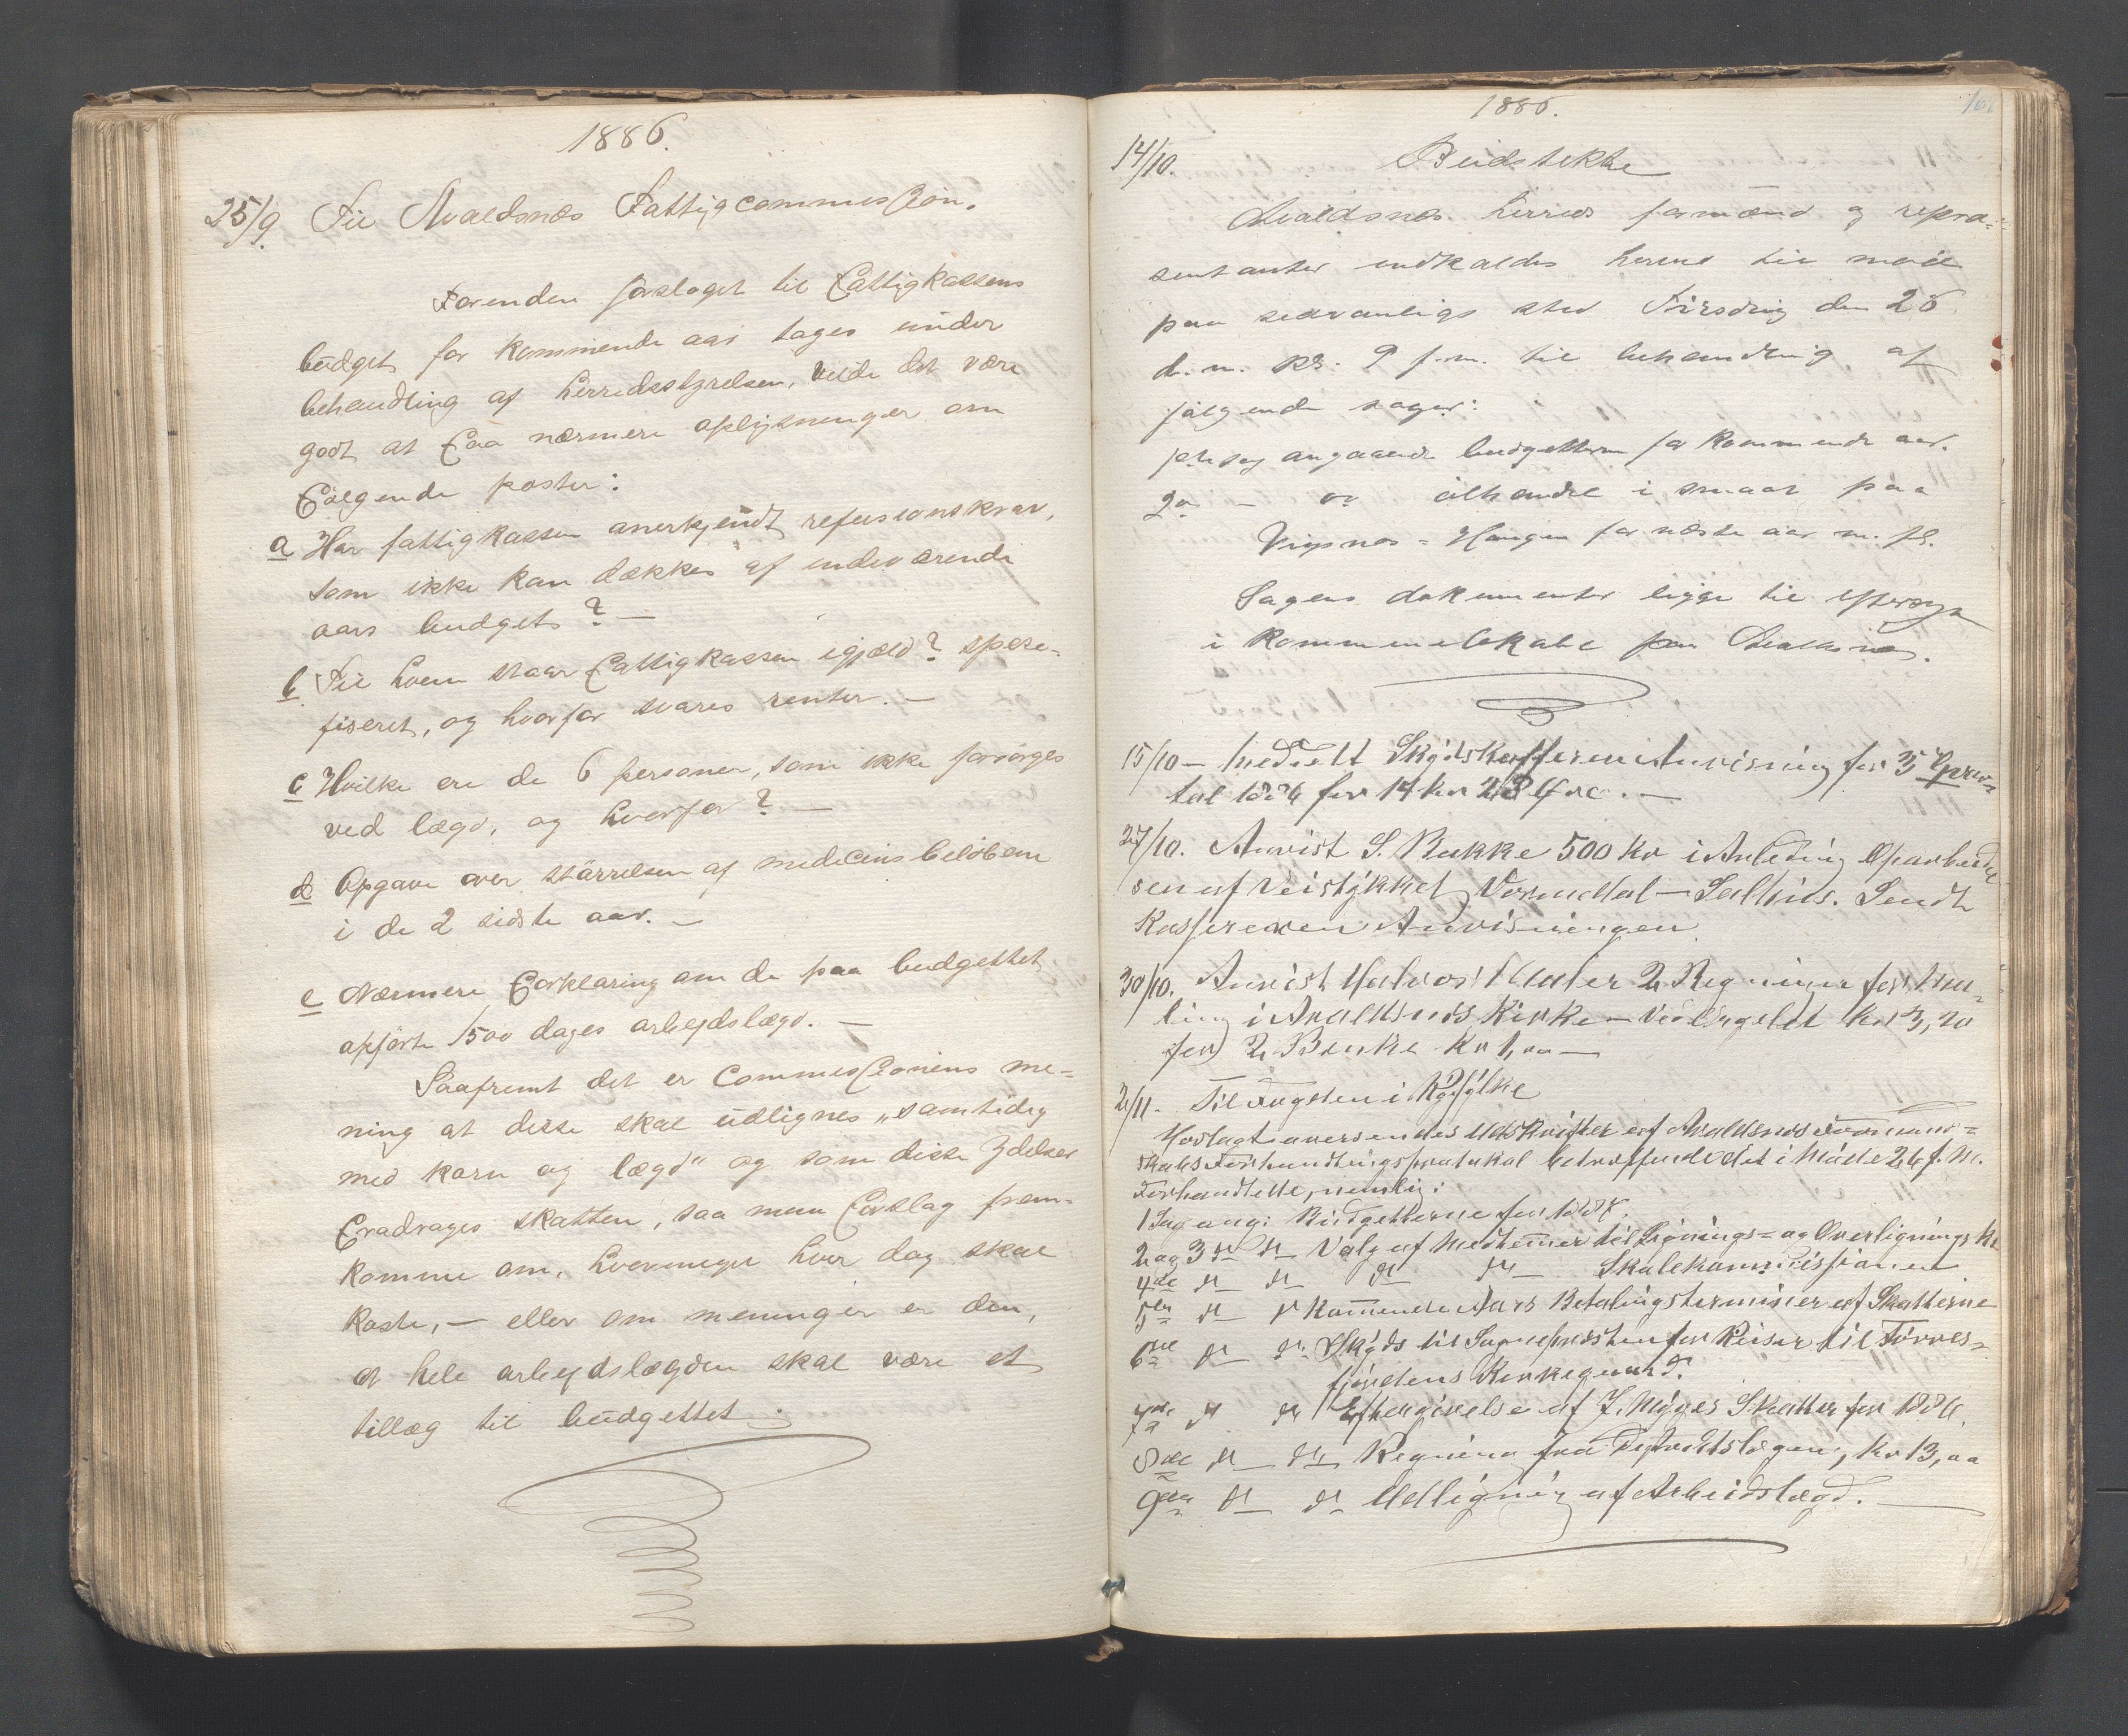 1886.
25/9. Til Avaldsnæs Fattigcommission.
Forenden forslaget til Fattigkassens
budget for kommende aar tages under
behandling af herredsstyrelsen, vilde det være
godt at faa nærmere oplysninger om
følgende poster:
a Har fattigkassen anerkjendt refusionskrav,
som ikke kan dækkes af indeværende
aars budget? —
b Til hvem staar Fattigkassen igjæld? spese-
fiseret, og hvorfor svares renter. —
c Hvilke ere de 6 personer, som ikke forsørges
ved lægd, og hvorfor? —
d Opgave over størrelsen af medicinsbeløbene
i de 2 sidste aar. —
e Nærmere Forklaring om de paa budgettet
opførte 1500 dages arbejdslægd. —
Saafremt det er Commissionens me-
ning at disse skal udlignes „samtidig
med korn og lægd" og som disse Ydelser
fradrages skatten, saa maa Forslag frem-
komme om, hvormeget hver dag skal
koste, — eller om meningen er den,
at hele arbejdslægden skal være et
tillæg til budgettet.
1886.
14/10. Budstikke
Avaldsnes herreds formænd og repræ-
sentanter indkaldes herved til møde
paa sedvanligt sted Tirsdag den 26
d. m. kl. 9 f.m. til behandling af
følgende sager:
1ste sag angaaende budgetterne for kommende aar.
2den — " ølhandel i smaat paa
Vigsnes-Haugen for næste aar m. fl.
Sagens dokumenter ligge til eftersyn
i kommunelokalet paa Avaldsnes.
15/10 — Meddelt Skydskafferen Anvisning for 3 Qvar-
tal 1886 for 14 kr 28 Øre. —
27/10. Anvist S. Bakke 500 kr i Anledning Oparbeidel
sen af Veistykket Vormedal — Salhus. Sendt
Kassereren Anvisningen.
30/10. Anvist Halvor Maler 2 Regninger for Ma-
ling i Avaldsnes Kirke — ved Orgelet kr 3,20
for 2 Benke kr 1,00 —
2/11. Til Fogden i Ryfylke
Hoslagt oversendes Udskrifter af Avaldsnes Formand-
skabs Forhandlingsprotokol betreffende det i Møde 26 f. M.
Forhandlede, nemlig:
1 Sag ang: Budgetterne for 1887.
2 og 3 de d — Valg af Medlemmer til Ligning- og Overligningsk
4de d d d d — Skolekommissionen
5te d d Kommende Aars Betalingsterminer af Skatterne
6te d d. Skyds til Sognepresten for Reiser til Førres-
fjordens Kirkegaard.
7de d d Eftergivelse af J. Myges Skatter for 1886.
8de d — d Regning fra Distriktslægen, kr 13,00
9de d d Udligning af Arbeidslægd.